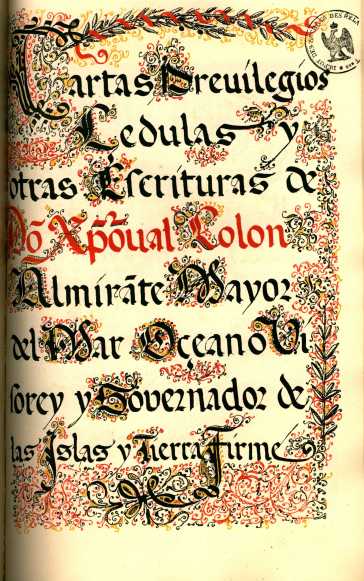 Cartas Preuilegios
Cedulas y
otras Escrituras de
Dõ Xp̃õual Colon
Almirãte Mayor
del Mar Oçeano Vi
sorey y Governador de
las Islas y Tierra Firme